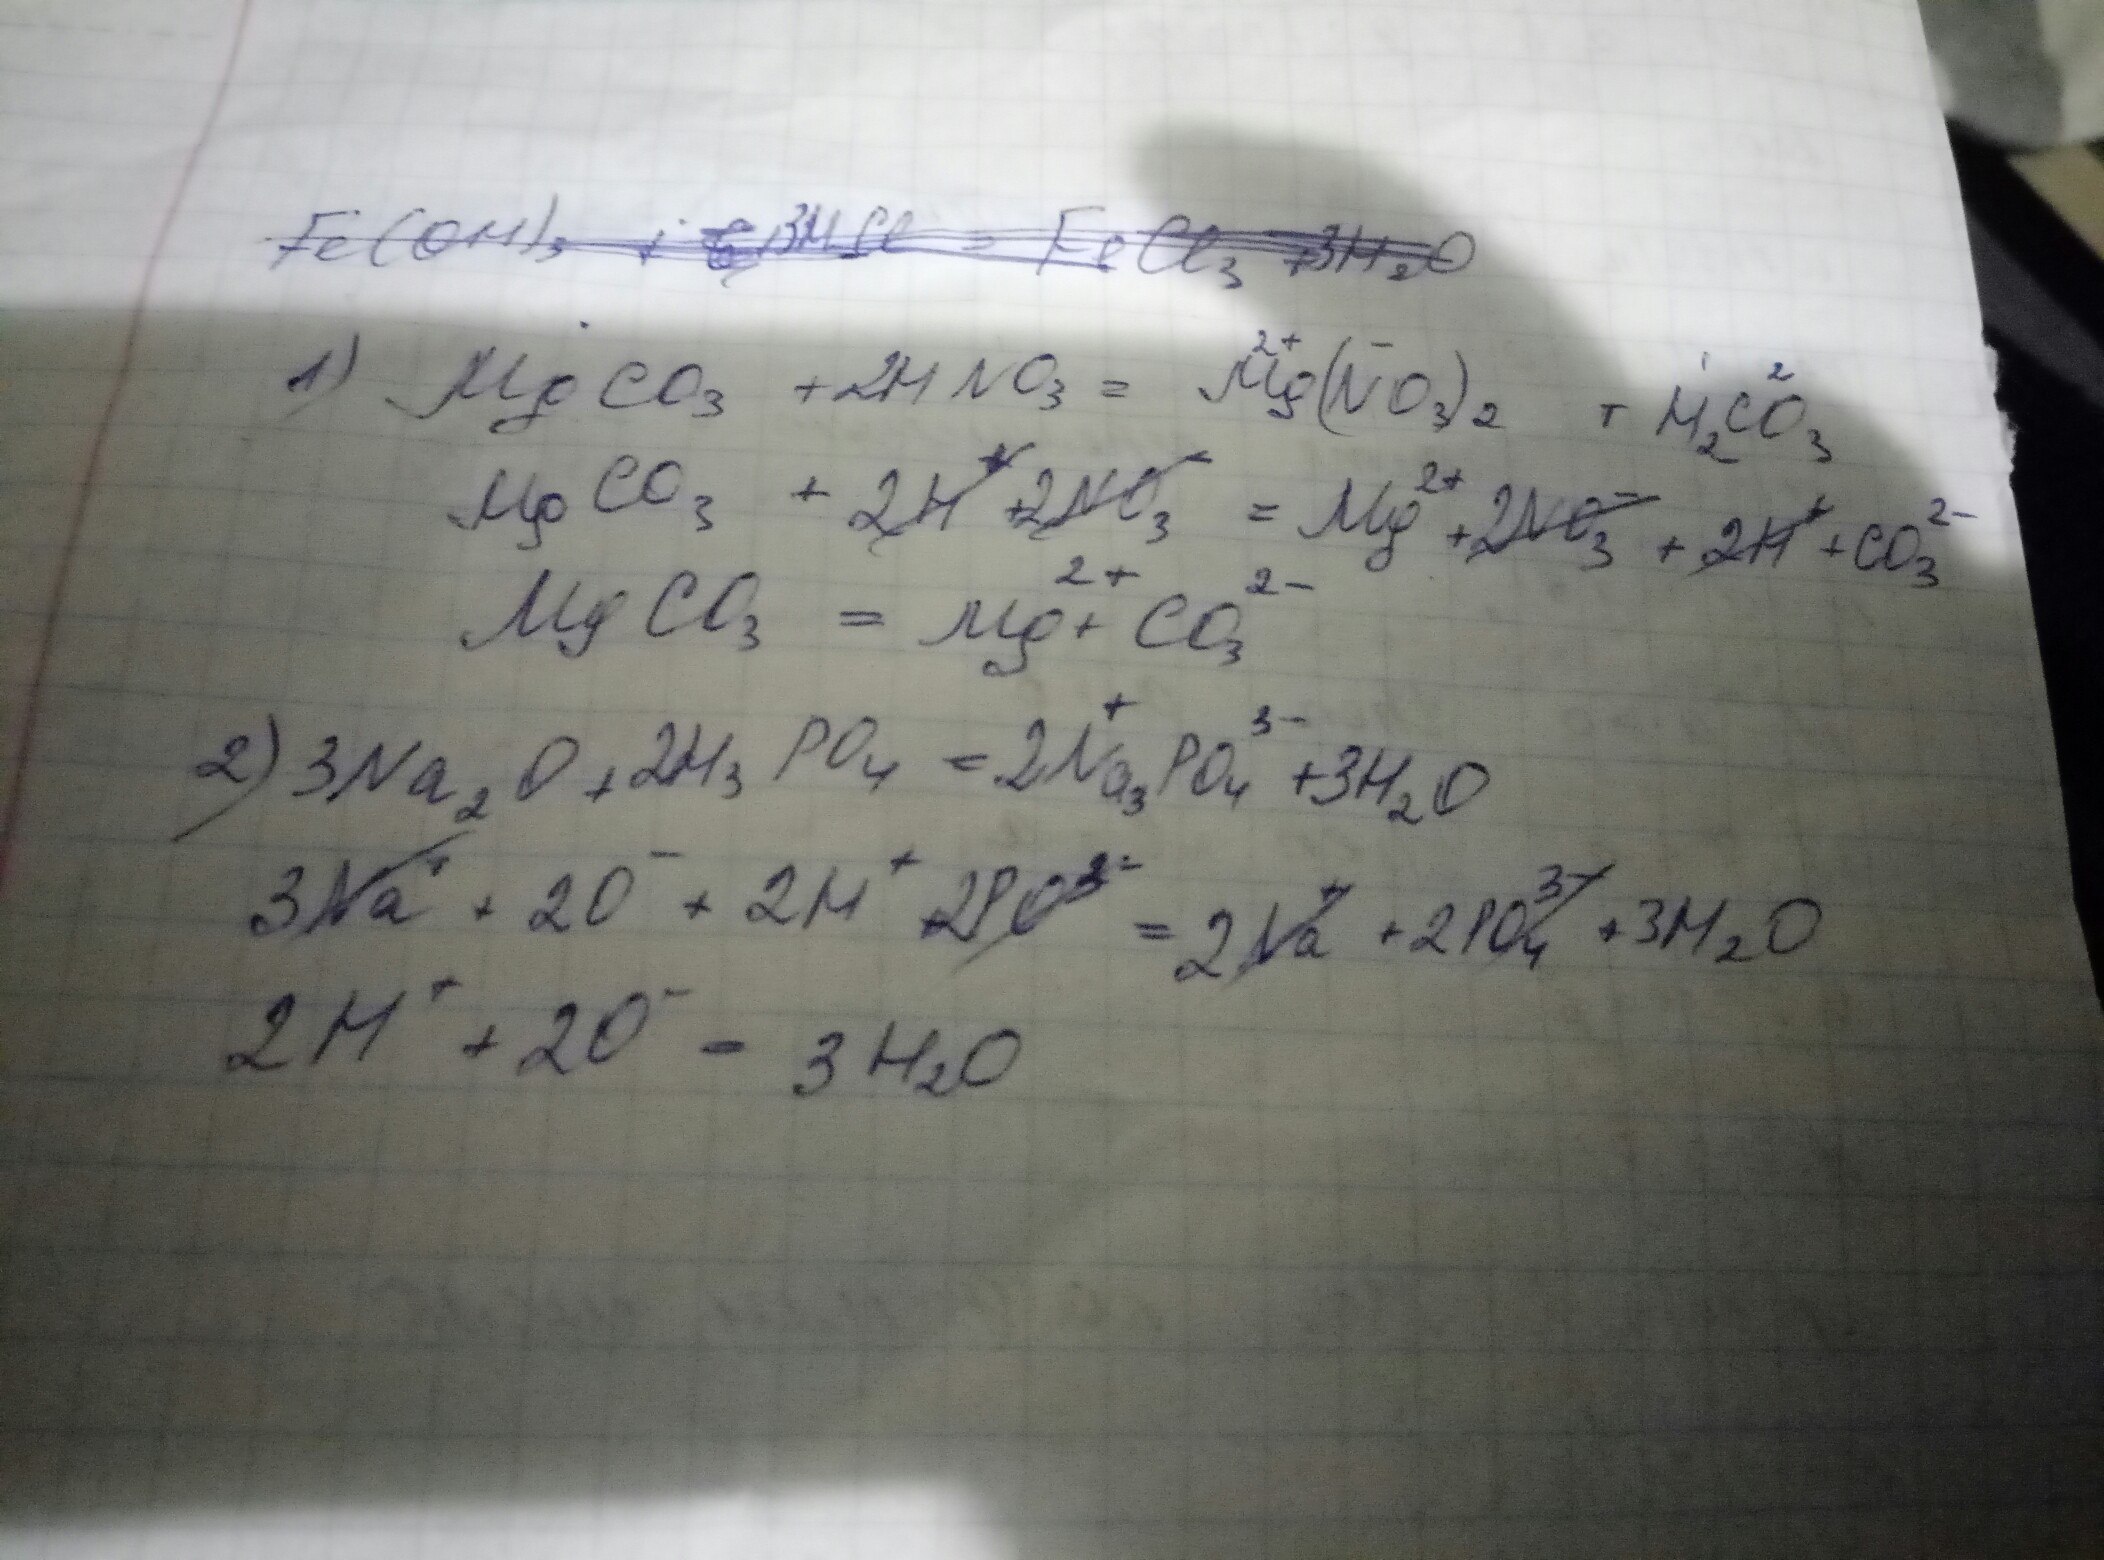 Fe(OH)₃ + 3HCl = FeCl₃ + 3H₂O
1) MgCO₃ + 2HNO₃ = Mg²⁺(NO₃⁻)₂ + H₂CO₃²
MgCO₃ + 2H⁺ + 2NO₃⁻ = Mg²⁺ + 2NO₃⁻ + 2H⁺ + CO₃²⁻
MgCO₃ = Mg²⁺ + CO₃²⁻
2) 3Na₂O + 2H₃PO₄ = 2Na⁺₃PO₄³⁻ + 3H₂O
3Na⁺ + 2O⁻ + 2H⁺ + 2PO³⁻ = 2Na⁺ + 2PO₄³⁻ + 3H₂O
2H⁺ + 2O⁻ = 3H₂O